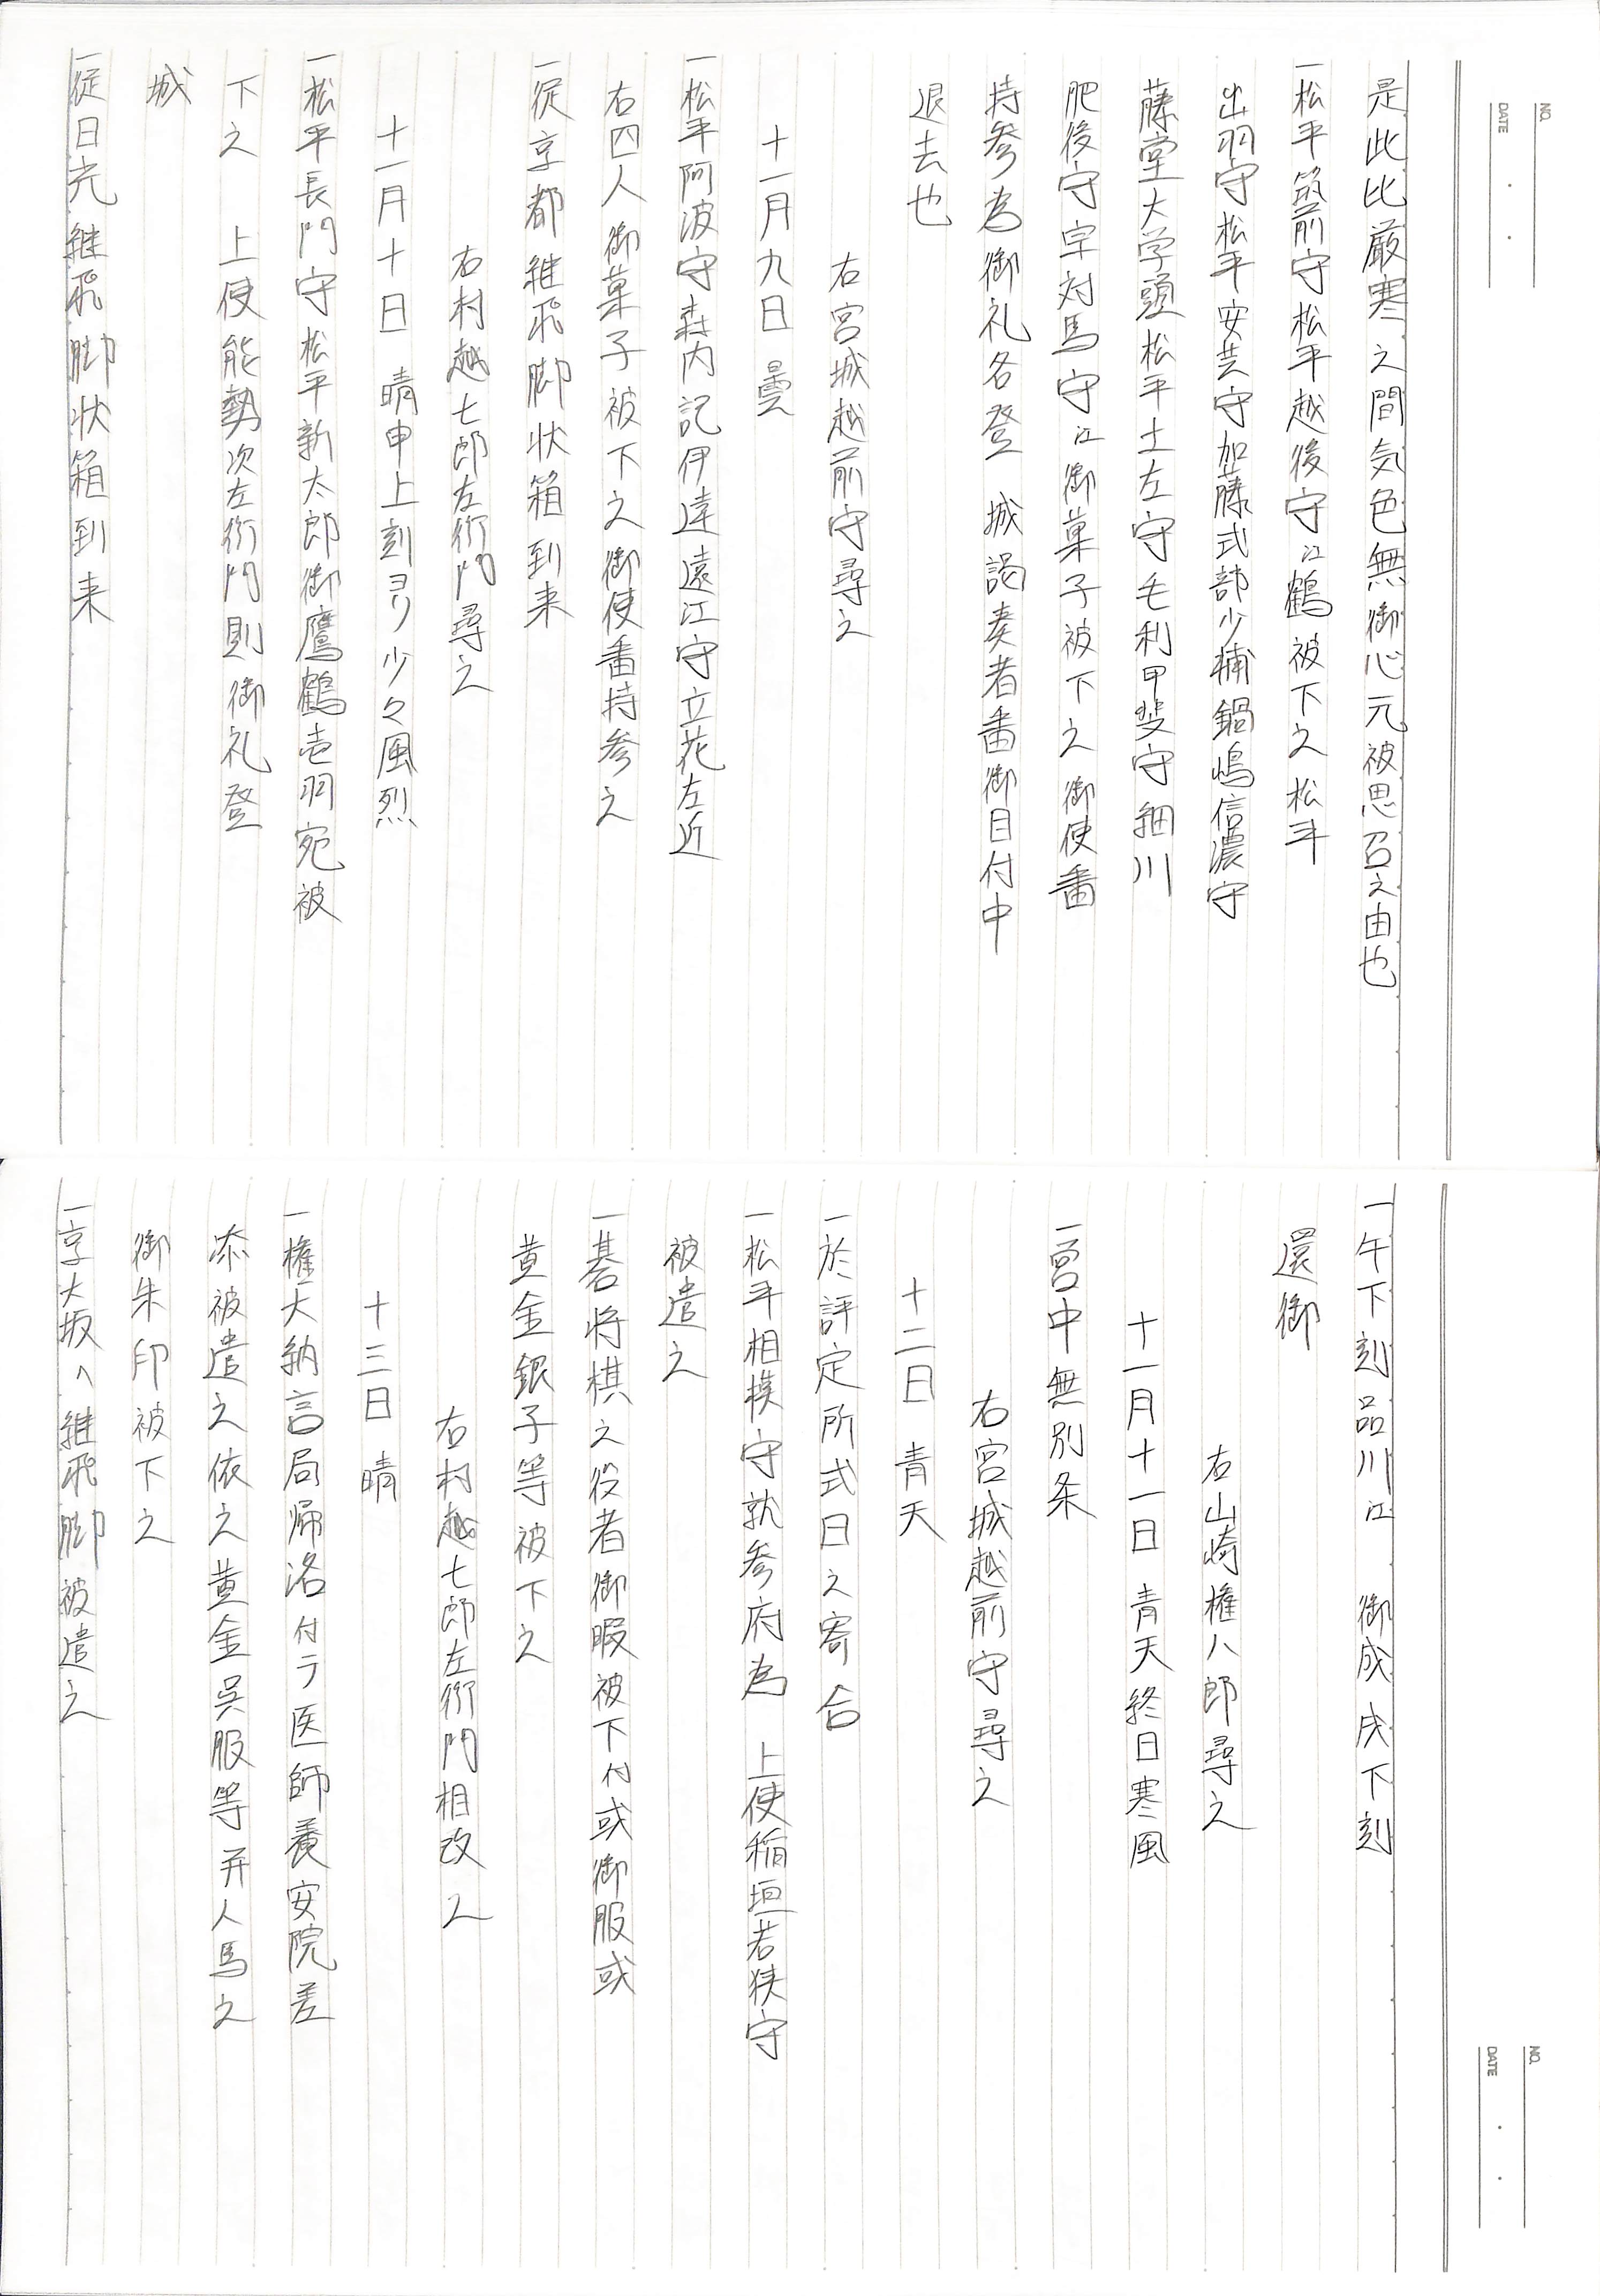 NO.
DATE
是此比厳寒之間気色無御心元被思召之由也
一松平筑前守松平越後守江鶴被下之松平
出羽守松平安芸守加藤式部少輔鍋嶋信濃守
藤堂大学頭松平土左守毛利甲斐守細川
肥後守宗対馬守江御菓子被下之御使番
持参為御礼各登 城謁奏者番御目付中
退去也
右宮城越前守尋之
十一月九日 曇
一松平阿波守森内記伊達遠江守立花左近
右四人御菓子被下之御使番持参之
一従京都継飛脚状箱到来
右村越七郎左衛門尋之
十一月十日 晴申上刻ヨリ少々風烈
一松平長門守松平新太郎御鷹鶴壱羽宛被
下之 上使能勢次左衛門則御礼登
城
一従日光継飛脚状箱到来
NO.
DATE
一午下刻品川江 御成戌下刻
還御
右山崎権八郎尋之
十一月十一日 青天終日寒風
一宮中無別条
右宮城越前守尋之
十二日 青天
一於評定所式日之寄合
一松平相模守就参府為 上使稲垣若狭守
被遣之
一碁将棋之役者御暇被下付或御服或
黄金銀子等被下之
右村越七郎左衛門相改之
十三日 晴
一権大納言局帰洛付テ医師養安院差
添被遣之依之黄金呉服等并人馬之
御朱印被下之
一京大坂へ継飛脚被遣之